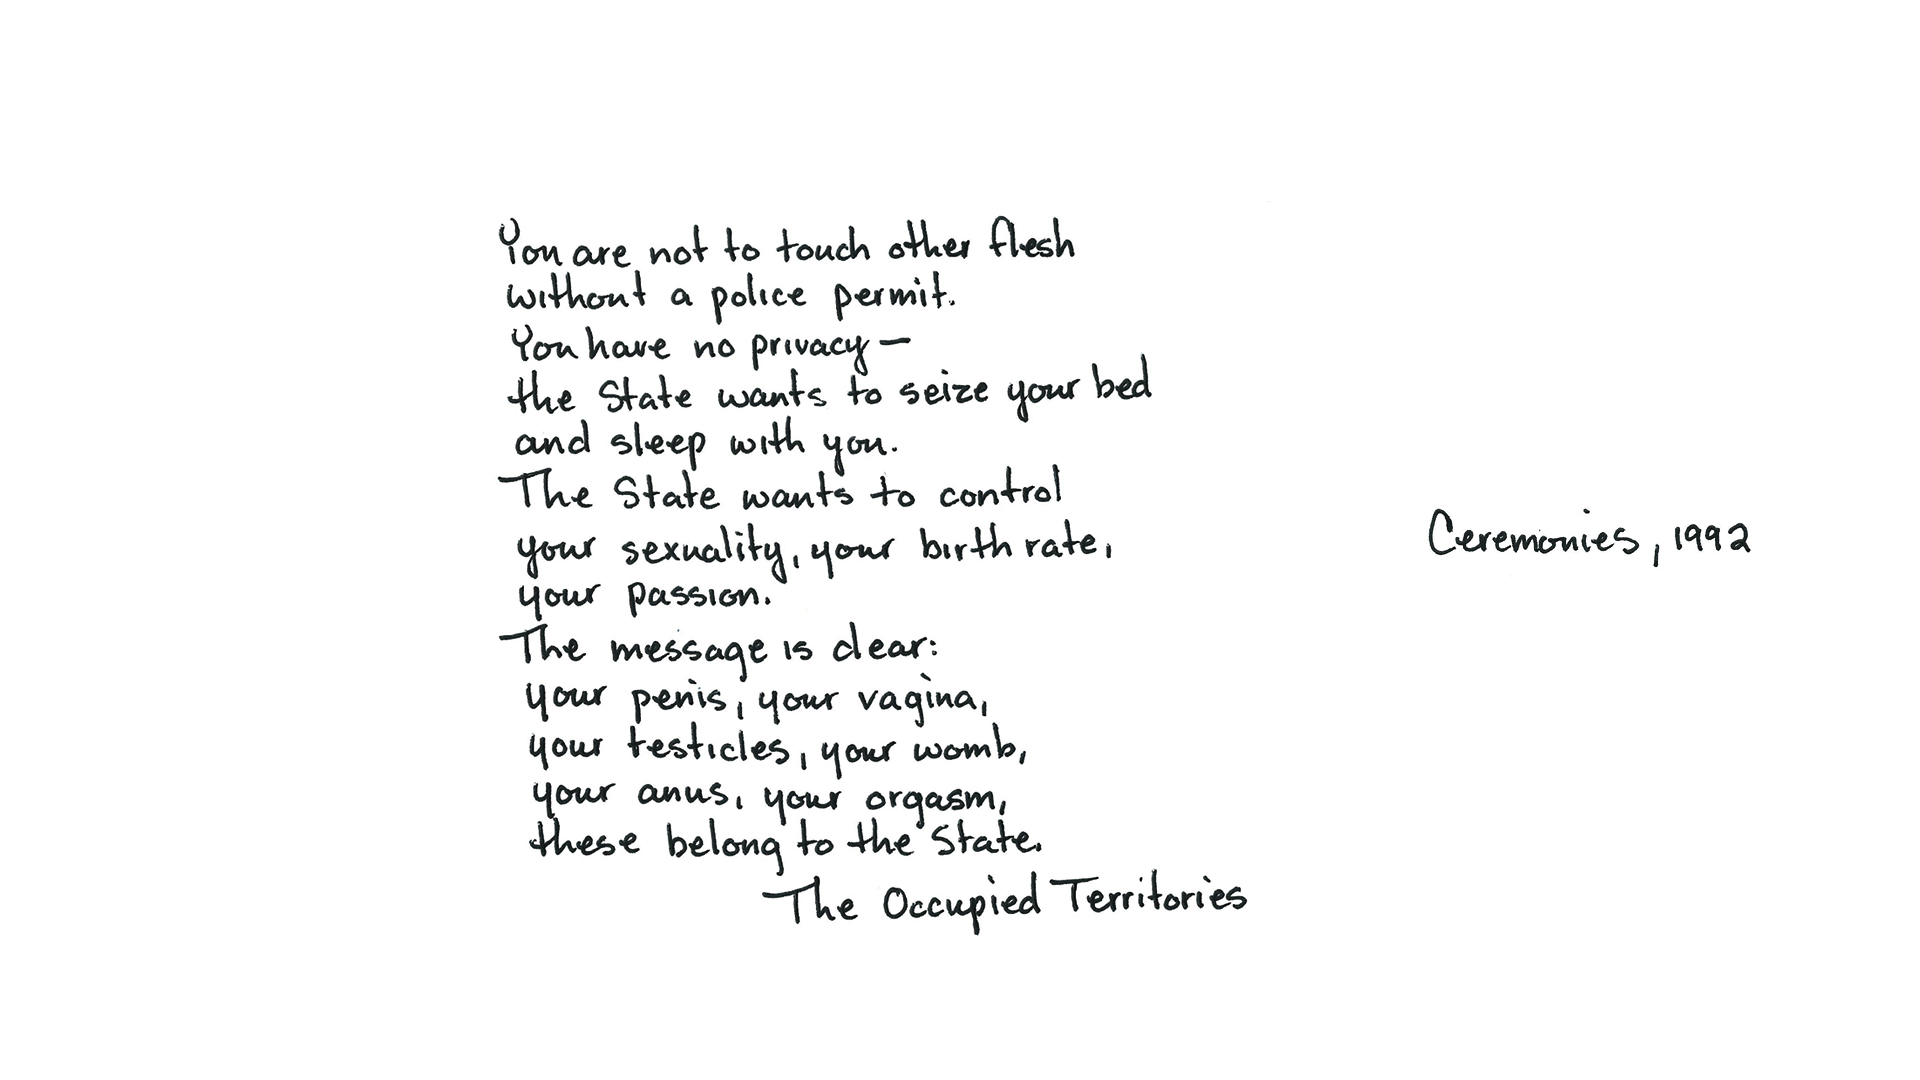 You are not to touch other flesh
without a police permit.
You have no privacy—
the State wants to seize your bed
and sleep with you.
The State wants to control
your sexuality, your birth rate,
your passion.
The message is clear:
your penis, your vagina,
your testicles, your womb,
your anus, your orgasm,
these belong to the State.
The Occupied Territories
Ceremonies, 1992